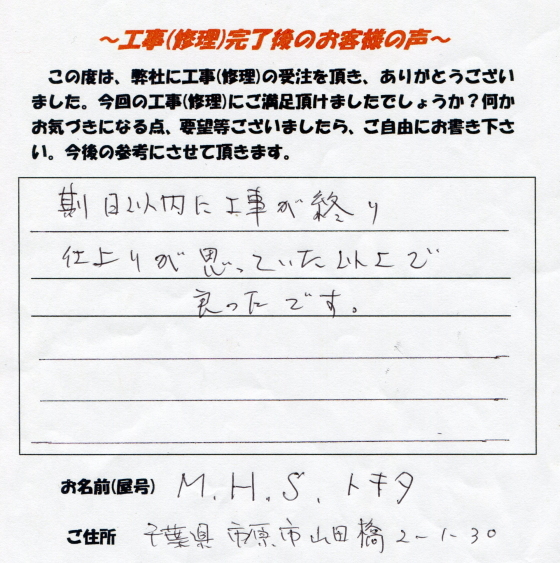 ～工事(修理)完了後のお客様の声～
この度は、弊社に工事(修理)の受注を頂き、ありがとうござい
ました。今回の工事(修理)にご満足頂けましたでしょうか？何か
お気づきになる点、要望等ございましたら、ご自由にお書き下さ
い。今後の参考にさせて頂きます。
期日以内に工事が終り
仕上りが思っていた以上で
良ったです。
お名前(屋号) M.H.S.トキタ
ご住所 千葉県市原市山田橋2-1-30